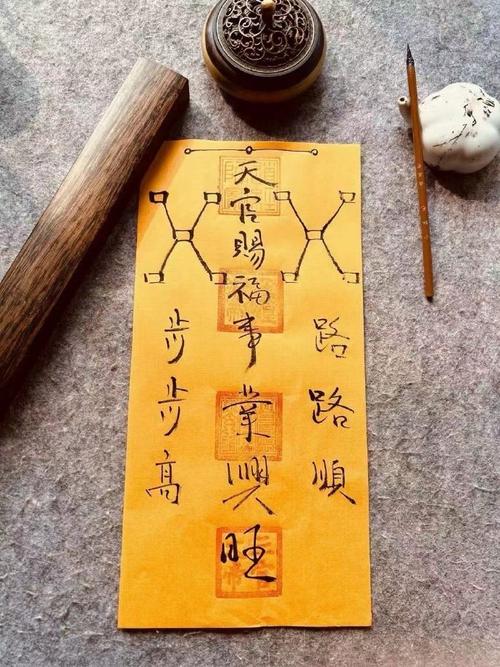 天官賜福事業興旺
路路順
步步高